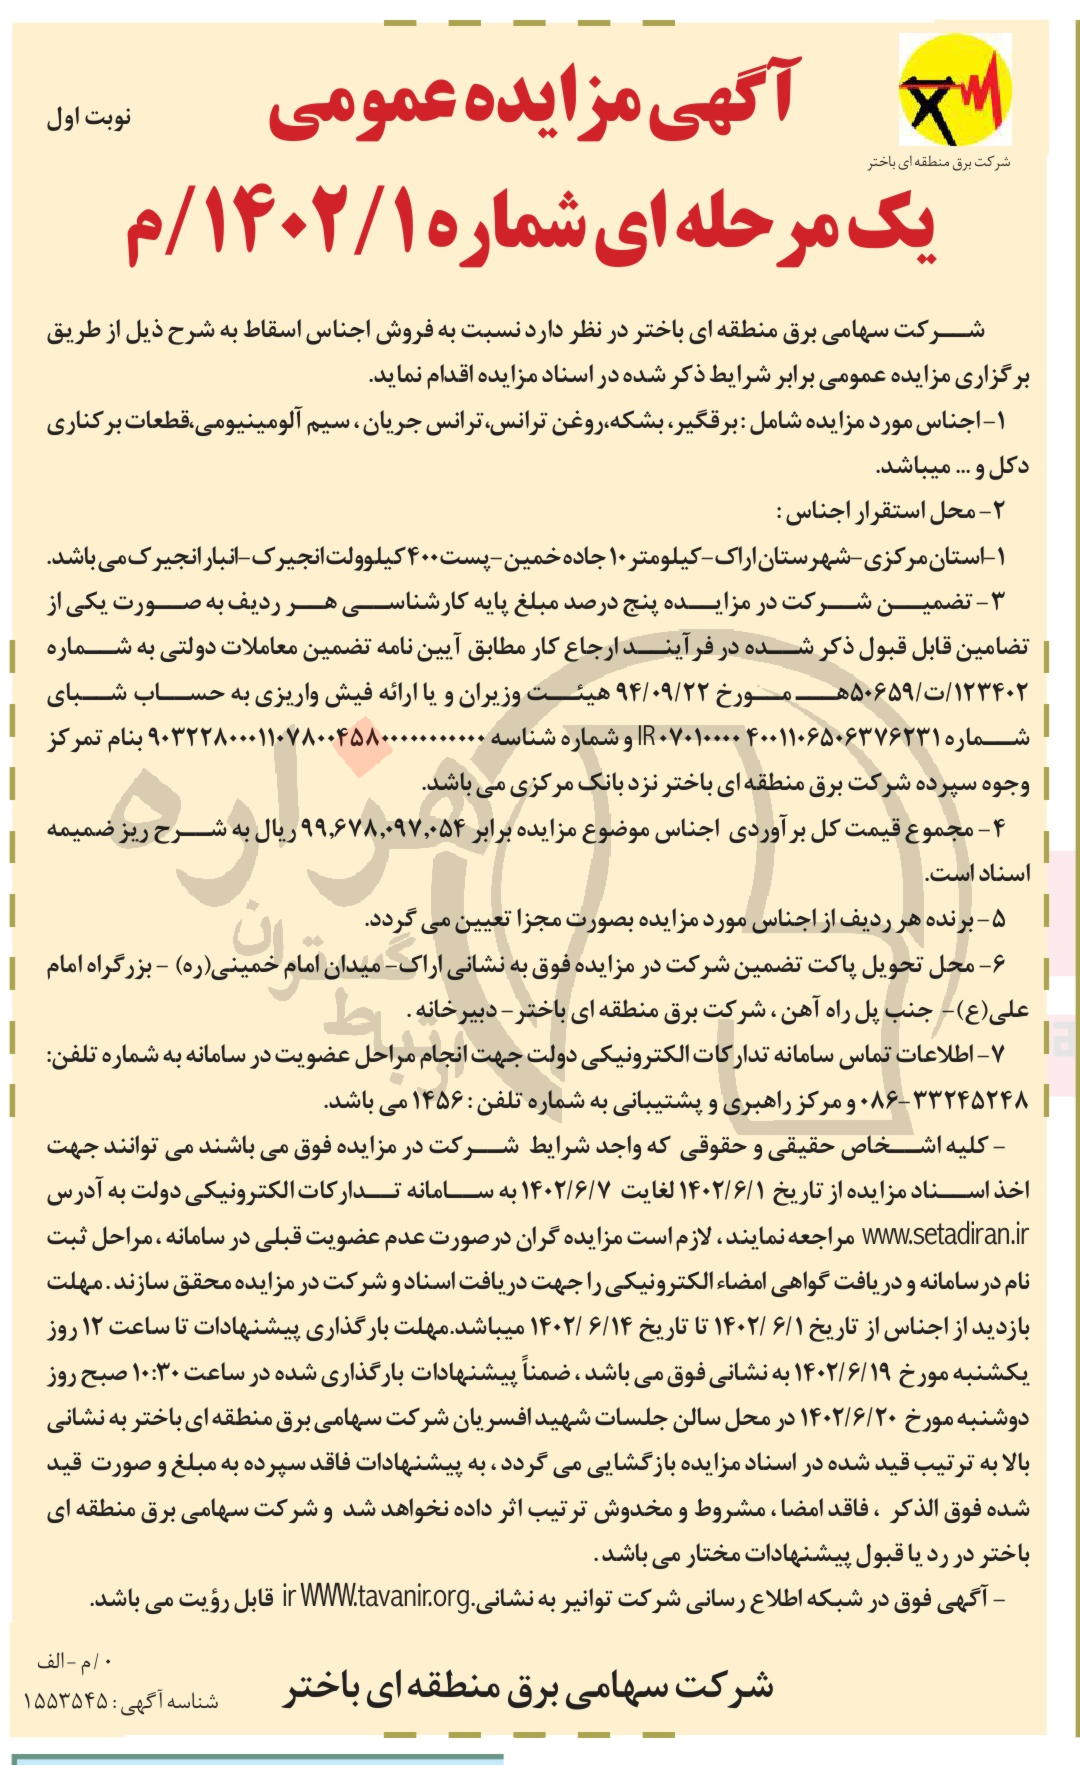 آگهی مزایده عمومی
نوبت اول
شرکت برق منطقه ای باختر
یک مرحله ای شماره ۱۴۰۲/۱/م
شرکت سهامی برق منطقه ای باختر در نظر دارد نسبت به فروش اجناس اسقاط به شرح ذیل از طریق
برگزاری مزایده عمومی برابر شرایط ذکر شده در اسناد مزایده اقدام نماید.
۱-اجناس مورد مزایده شامل :برقگیر، بشکه،روغن ترانس،ترانس جریان ، سیم آلومینیومی،قطعات برکناری
دکل و ... میباشد.
۲- محل استقرار اجناس :
۱-استان مرکزی-شهرستان اراک-کیلومتر ۱۰ جاده خمین-پست ۴۰۰ کیلوولت انجیرک-انبار انجیرک می باشد.
۳- تضمین شرکت در مزایده پنج درصد مبلغ پایه کارشناسی هر ردیف به صورت یکی از
تضامین قابل قبول ذکر شده در فرآیند ارجاع کار مطابق آیین نامه تضمین معاملات دولتی به شماره
۱۲۳۴۰۲/ت/۵۰۶۵۹هـ مورخ ۹۴/۰۹/۲۲ هیئت وزیران و یا ارائه فیش واریزی به حساب شبای
شماره IR۰۷۰۱۰۰۰۰ ۴۰۰۱۱۰۶۵۰۶۳۷۶۲۳۱ و شماره شناسه ۹۰۳۲۲۸۰۰۰۱۱۰۷۸۰۰۴۵۸۰۰۰۰۰۰۰۰۰۰۰ بنام تمرکز
وجوه سپرده شرکت برق منطقه ای باختر نزد بانک مرکزی می باشد.
۴- مجموع قیمت کل برآوردی اجناس موضوع مزایده برابر ۹۹,۶۷۸,۰۹۷,۰۵۴ ریال به شرح ریز ضمیمه
اسناد است.
۵- برنده هر ردیف از اجناس مورد مزایده بصورت مجزا تعیین می گردد.
۶- محل تحویل پاکت تضمین شرکت در مزایده فوق به نشانی اراک- میدان امام خمینی(ره) - بزرگراه امام
علی(ع)- جنب پل راه آهن ، شرکت برق منطقه ای باختر- دبیرخانه .
۷- اطلاعات تماس سامانه تدارکات الکترونیکی دولت جهت انجام مراحل عضویت در سامانه به شماره تلفن:
۰۸۶-۳۳۲۴۵۲۴۸ و مرکز راهبری و پشتیبانی به شماره تلفن : ۱۴۵۶ می باشد.
- کلیه اشخاص حقیقی و حقوقی که واجد شرایط شرکت در مزایده فوق می باشند می توانند جهت
اخذ اسناد مزایده از تاریخ ۱۴۰۲/۶/۱ لغایت ۱۴۰۲/۶/۷ به سامانه تدارکات الکترونیکی دولت به آدرس
www.setadiran.ir مراجعه نمایند ، لازم است مزایده گران درصورت عدم عضویت قبلی در سامانه ، مراحل ثبت
نام درسامانه و دریافت گواهی امضاء الکترونیکی را جهت دریافت اسناد و شرکت در مزایده محقق سازند . مهلت
بازدید از اجناس از تاریخ ۶/۱ /۱۴۰۲ تا تاریخ ۶/۱۴ /۱۴۰۲ میباشد.مهلت بارگذاری پیشنهادات تا ساعت ۱۲ روز
یکشنبه مورخ ۱۴۰۲/۶/۱۹ به نشانی فوق می باشد ، ضمناً پیشنهادات بارگذاری شده در ساعت ۱۰:۳۰ صبح روز
دوشنبه مورخ ۱۴۰۲/۶/۲۰ در محل سالن جلسات شهید افسریان شرکت سهامی برق منطقه ای باختر به نشانی
بالا به ترتیب قید شده در اسناد مزایده بازگشایی می گردد ، به پیشنهادات فاقد سپرده به مبلغ و صورت قید
شده فوق الذکر ، فاقد امضا ، مشروط و مخدوش ترتیب اثر داده نخواهد شد و شرکت سهامی برق منطقه ای
باختر در رد یا قبول پیشنهادات مختار می باشد .
- آگهی فوق در شبکه اطلاع رسانی شرکت توانیر به نشانی.ir WWW.tavanir.org قابل رؤیت می باشد.
۰/م-الف
شناسه آگهی : ۱۵۵۳۵۴۵
شرکت سهامی برق منطقه ای باختر
هزاره
گستران
ارتباط